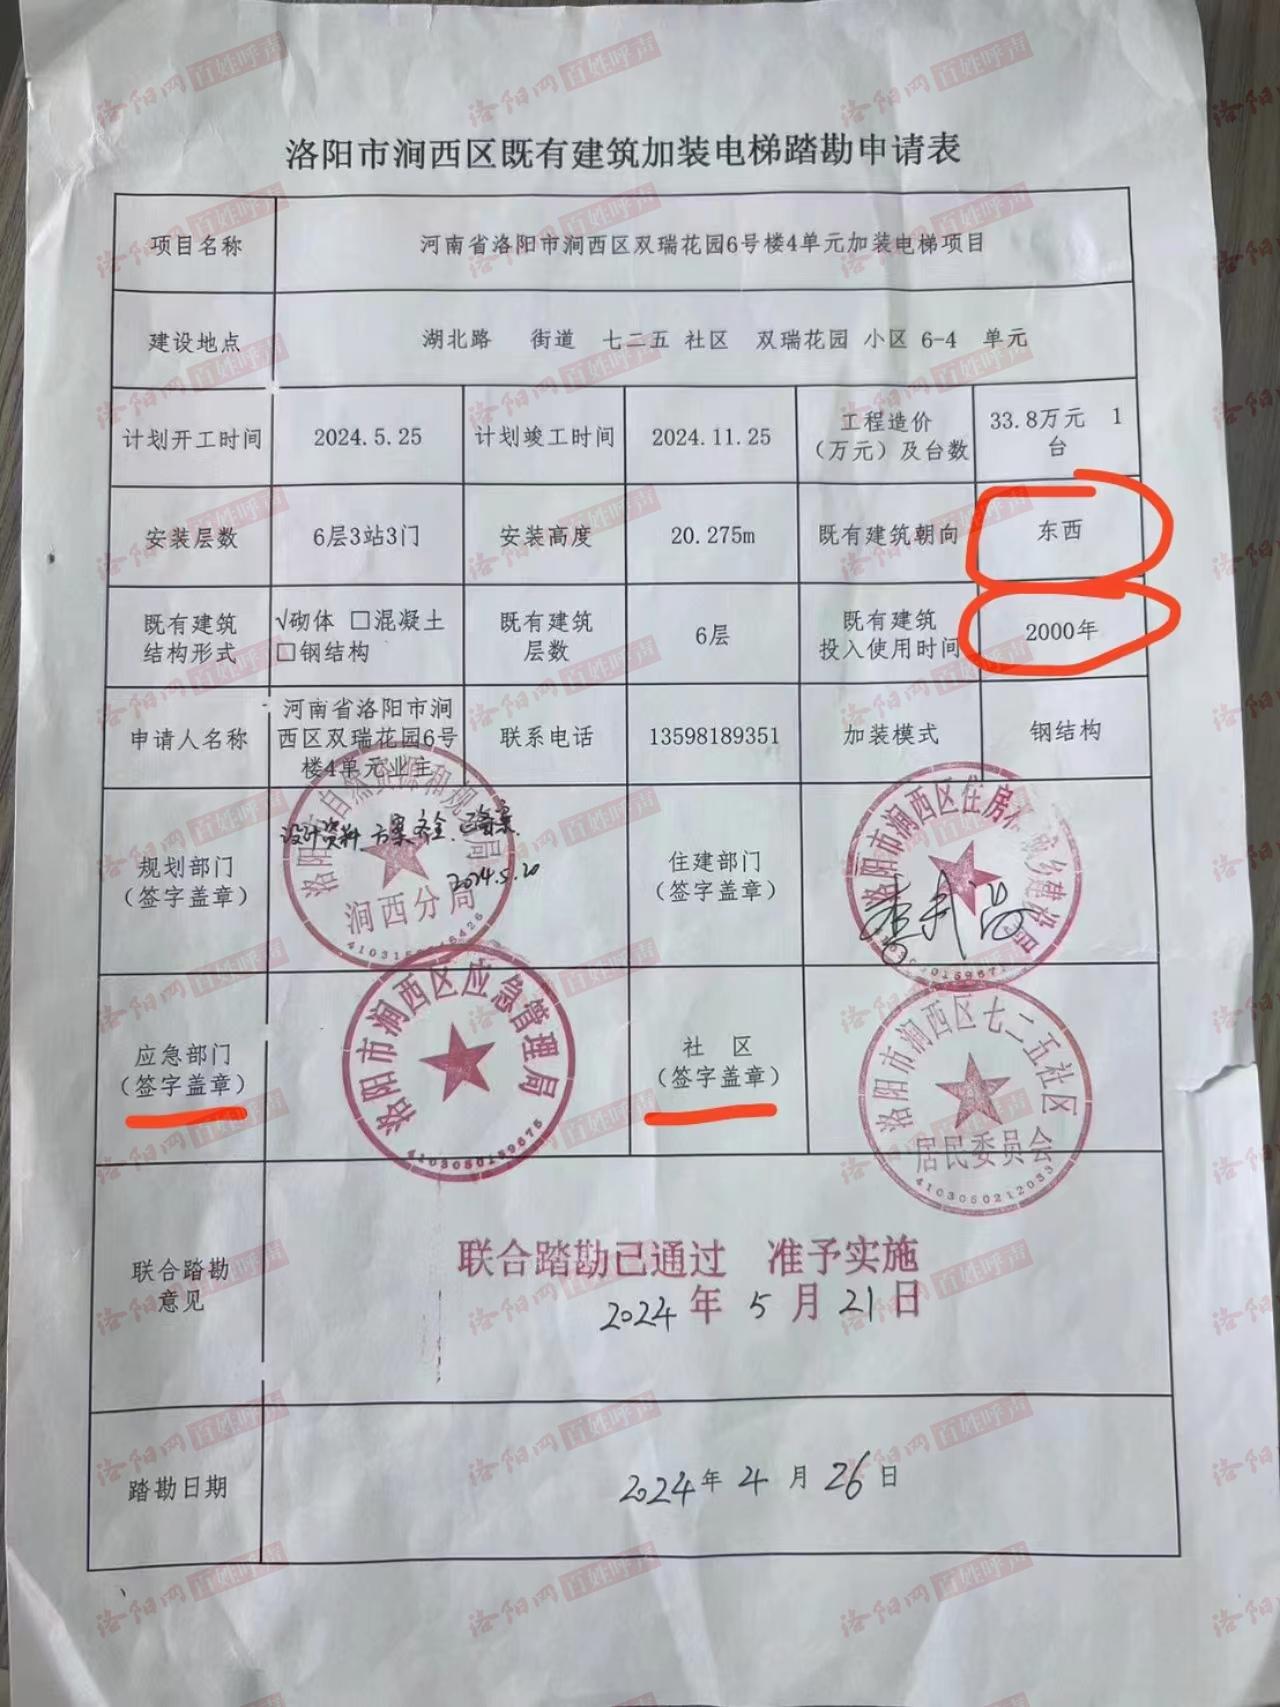 洛阳市涧西区既有建筑加装电梯踏勘申请表
项目名称
河南省洛阳市涧西区双瑞花园6号楼4单元加装电梯项目
建设地点
湖北路 街道 七二五 社区 双瑞花园 小区 6-4 单元
计划开工时间
2024.5.25
计划竣工时间
2024.11.25
工程造价
（万元）及台数
33.8万元 1
台
安装层数
6层3站3门
安装高度
20.275m
既有建筑朝向
东西
既有建筑
结构形式
√砌体 □混凝土
□钢结构
既有建筑
层数
6层
既有建筑
投入使用时间
2000年
申请人名称
河南省洛阳市涧
西区双瑞花园6号
楼4单元业主
联系电话
13598189351
加装模式
钢结构
规划部门
（签字盖章）
设计资料、方案齐全、已备案.
2024.5.20
洛阳市自然资源和规划局
涧西分局
住建部门
（签字盖章）
洛阳市涧西区住房和城乡建设局
应急部门
（签字盖章）
洛阳市涧西区应急管理局
4103050159675
社 区
（签字盖章）
洛阳市涧西区七二五社区
居民委员会
4103050212033
联合踏勘
意见
联合踏勘已通过 准予实施
2024年5月21日
踏勘日期
2024年4月26日
洛阳网 百姓呼声